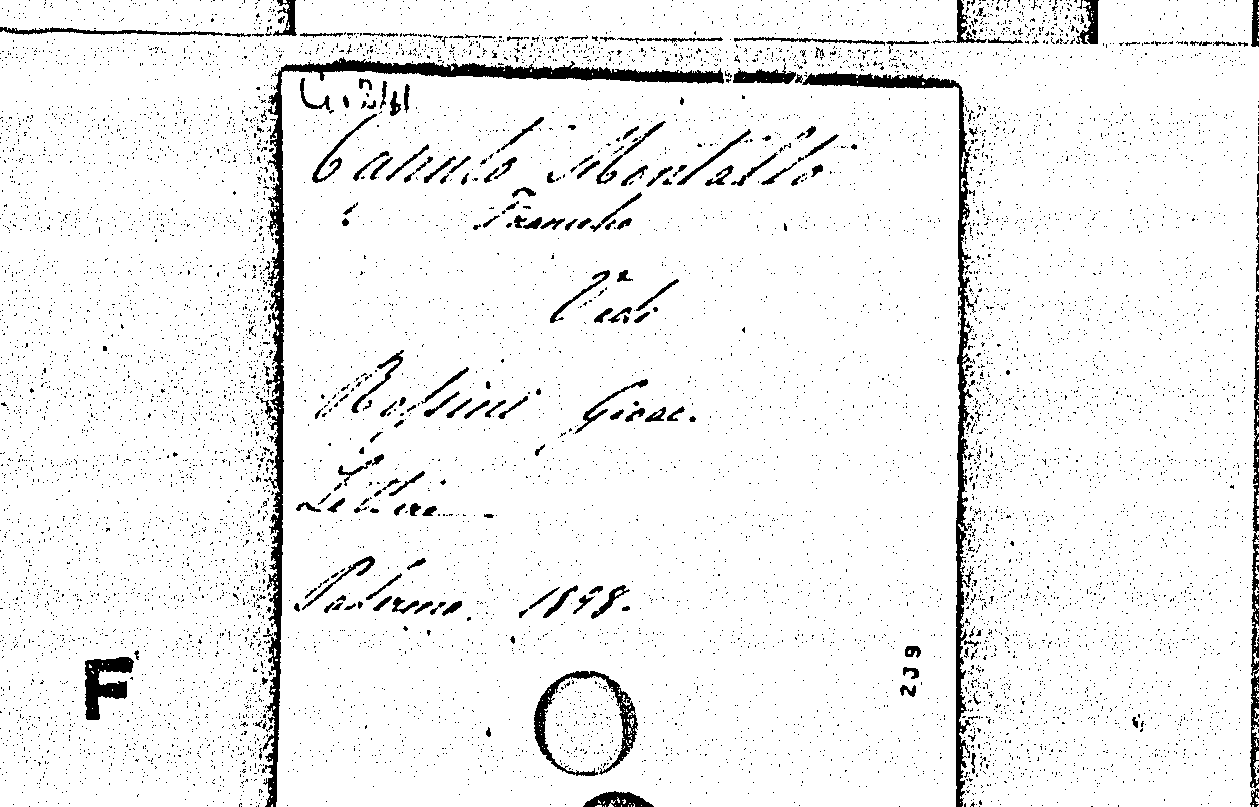 G. 2/61
Canuto Montalto
Francesco
Vedi
Rossini Gioac.
Lettere.
Palermo. 1898.
F
2J9